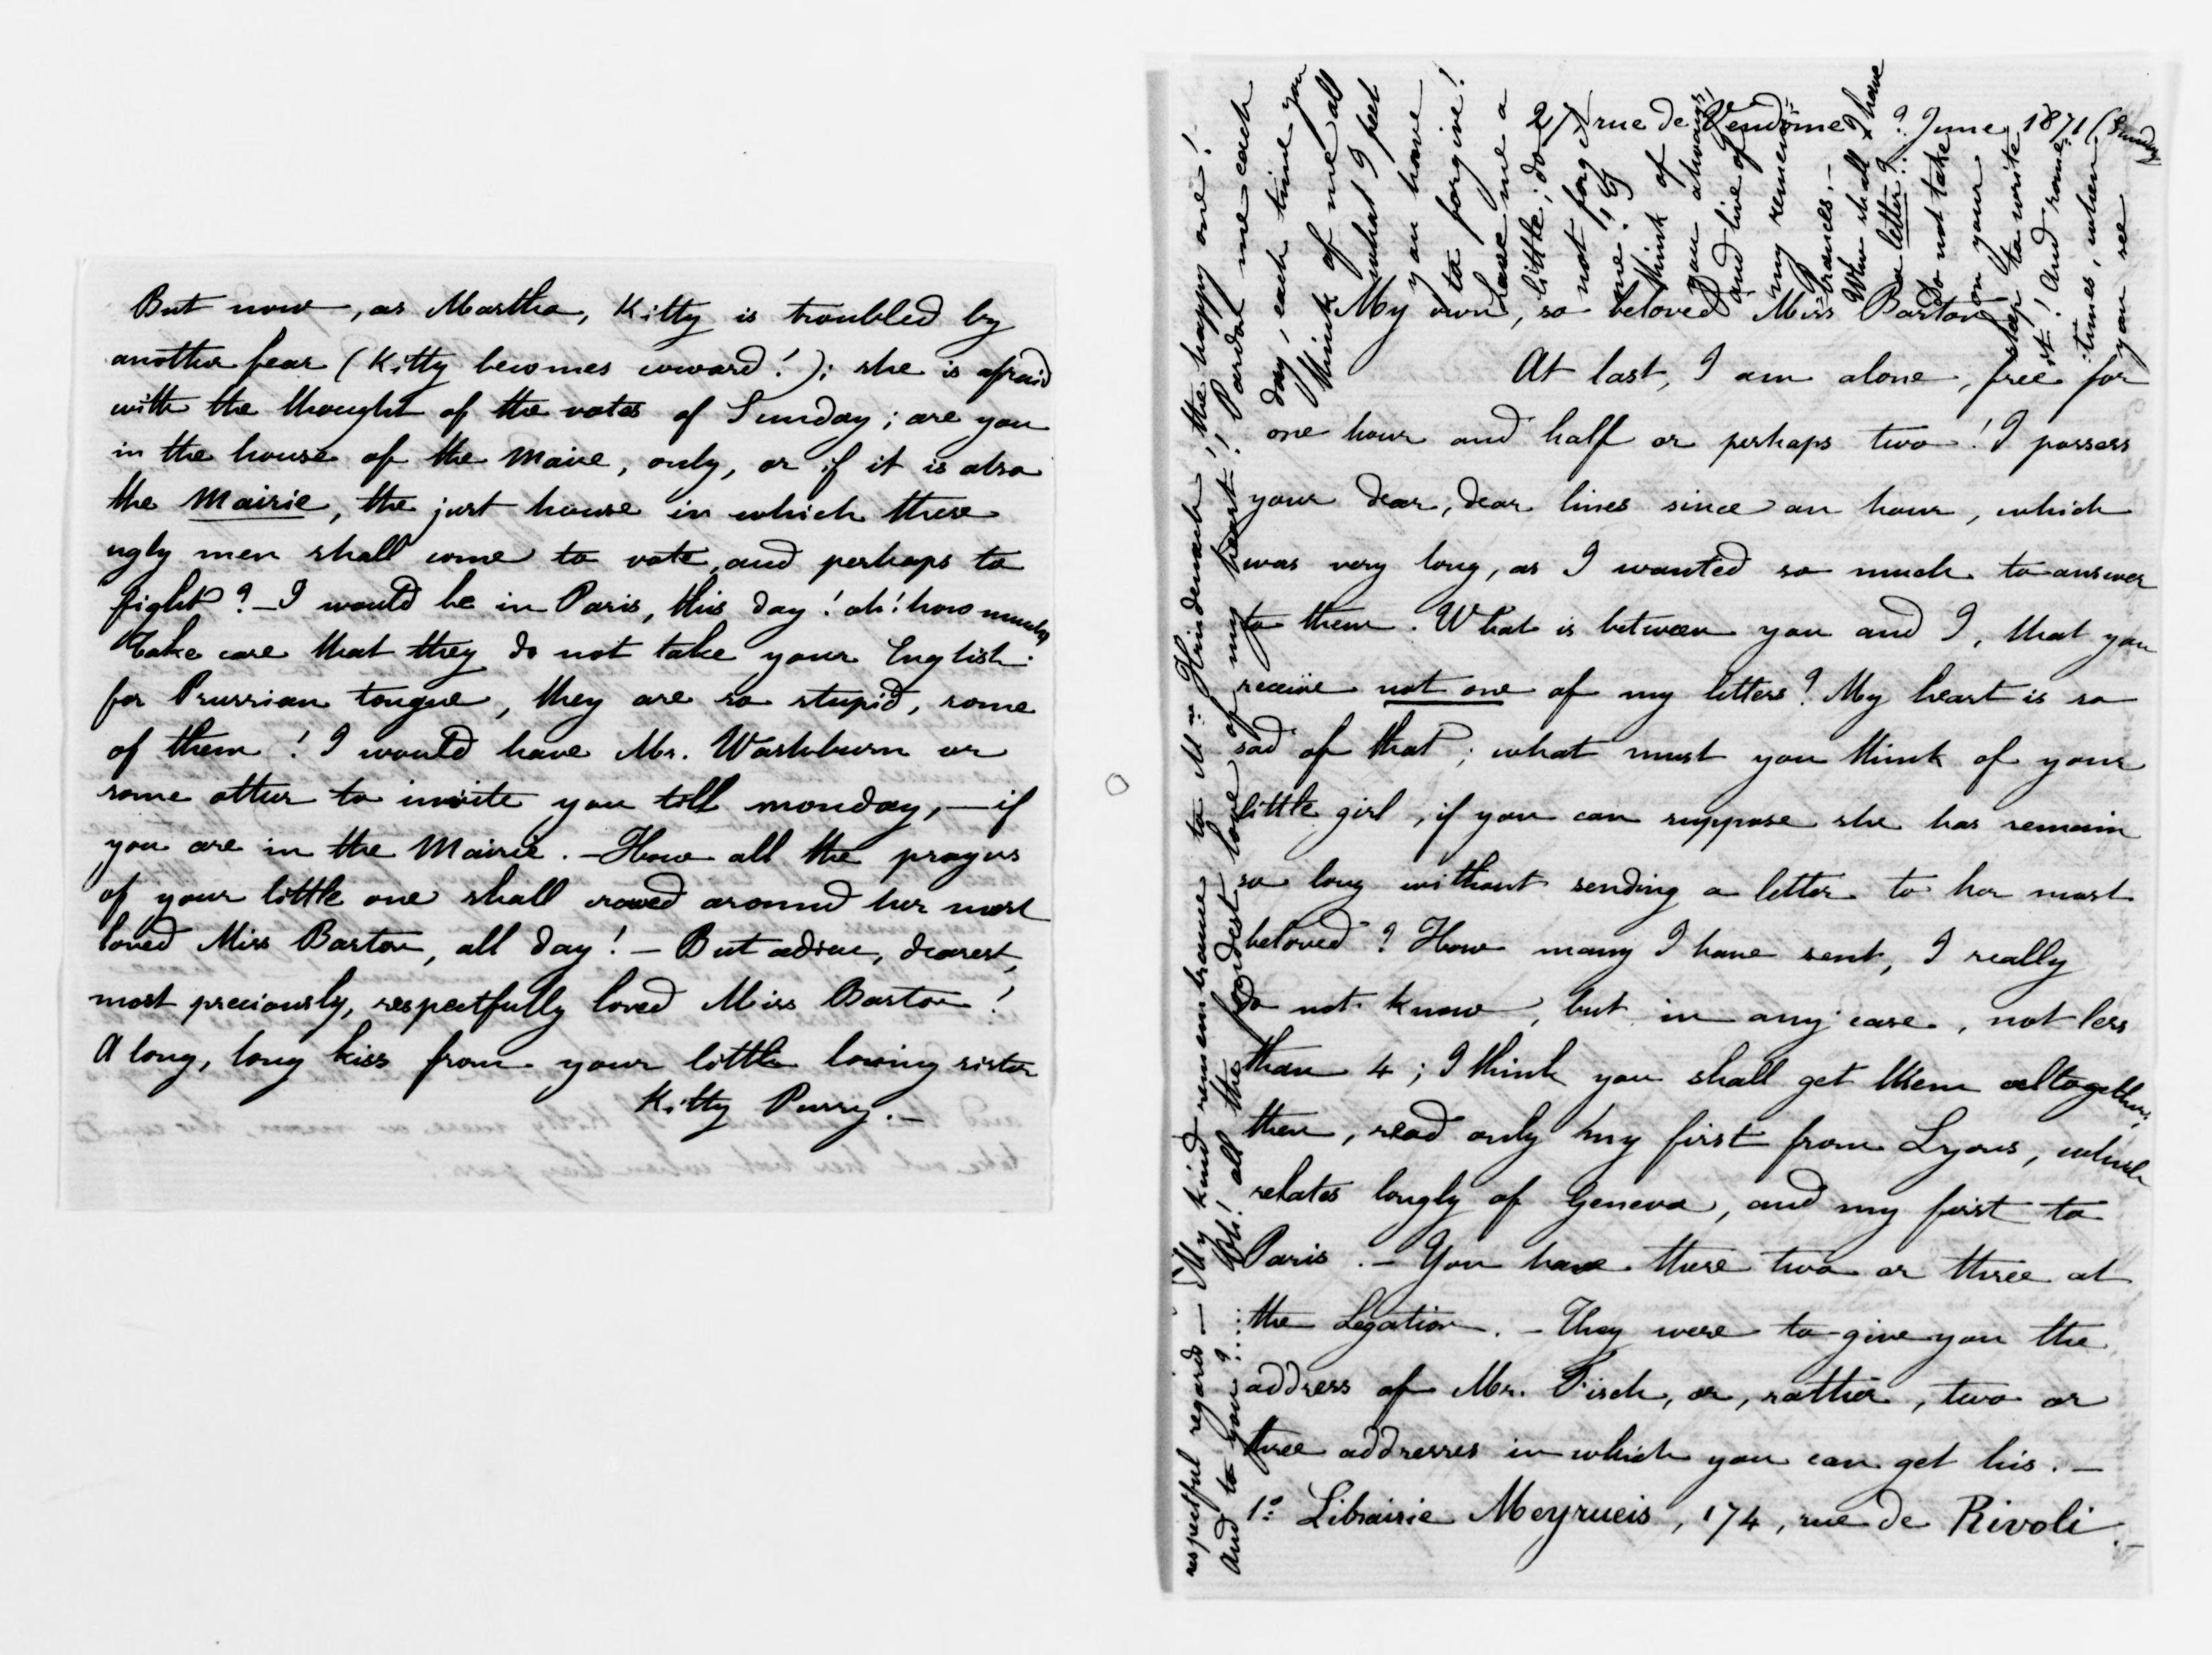 But now, as Martha, Kitty is troubled by
another fear (Kitty becomes coward!); she is afraid
with the thought of the votes of Sunday; are you
in the house of the Maire, only, or if it is also
the Mairie, the just house in which these
ugly men shall come to vote, and perhaps to
fight? – I would be in Paris, this day! oh! how much
take care that they do not take your English
for Prussian tongue, they are so stupid, some
of them! I would have Mr. Washburn or
some other to invite you till monday, – if
you are in the Mairie. – How all the prayers
of your little one shall crowed around her most
loved Miss Barton, all day! – But adieu, dearest,
most preciously, respectfully loved Miss Barton!
A long, long kiss from your little loving sister
Kitty Purry. –
27 rue de Vendôme ? June 1871 (Sunday
My own, so beloved Miss Barton
At last, I am alone, free for
one hour and half or perhaps two! I possess
your dear, dear lines since an hour, which
was very long, as I wanted so much to answer
to them. What is between you and I, that you
receive not one of my letters? My heart is so
sad of that; what must you think of your
little girl, if you can suppose she has remain
so long without sending a letter to her most
beloved? How many I have sent, I really
do not know, but in any case, not less
than 4; I think you shall get them altogether;
then, read only my first from Lyons, which
relates longly of Geneva, and my first to
Paris. – You have these two or three at
the Legation. – They were to give you the
address of Mr. Fisch, or, rather, two or
three addresses in which you can get his. –
1º: Librairie Meyrueis, 174, rue de Rivoli. –
respectful regards – My kind remembrance to Mme Hrindenach, the happy one!
And to you? .... Oh! all the fondest love of my heart! Pardon me each
day, each time you
think of me all
what I feel
you have
to forgive!
Love me a
little; do
not forget
me! I
think of
you always,
and live of
my remem-
brances. –
When shall I have
a letter?
Do not take
on your
sleep to write
it! And some-
times, when
you see